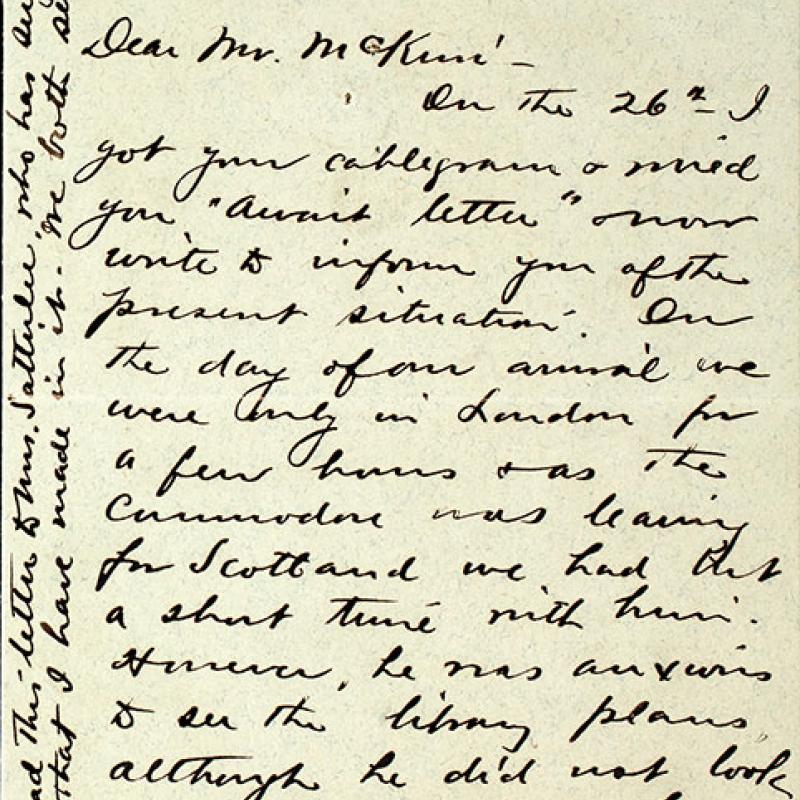 Dear Mr. McKim -
On the 26th I
got your cablegram & wired
you "Await letter" & now
write to inform you of the
present situation. On
the day of our arrival we
were only in London for
a few hours & as the
Commodore was leaving
for Scotland we had but
a short time with him.
However, he was anxious
to see the library plans,
although he did not look
ad this letter to Mrs. Satterlee, who has
that I have made in it. We both